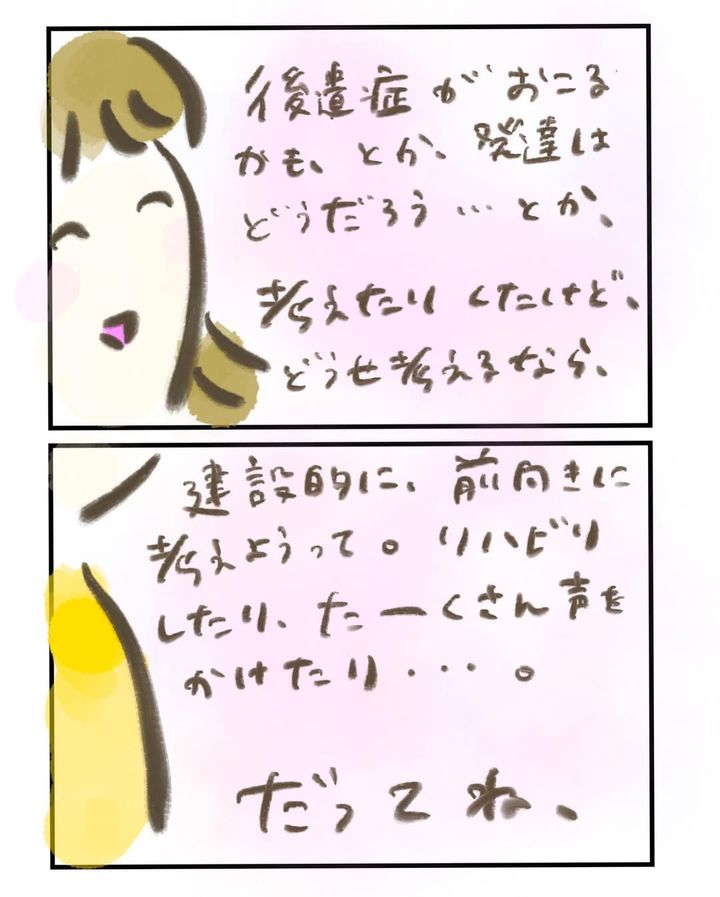 後遺症がおこる
かも、とか、発達は
どうだろう…とか、
考えたりしたけど、
どうせ考えるなら、
建設的に、前向きに
考えようって。リハビリ
したり、たーくさん声を
かけたり・・・。
だってね、